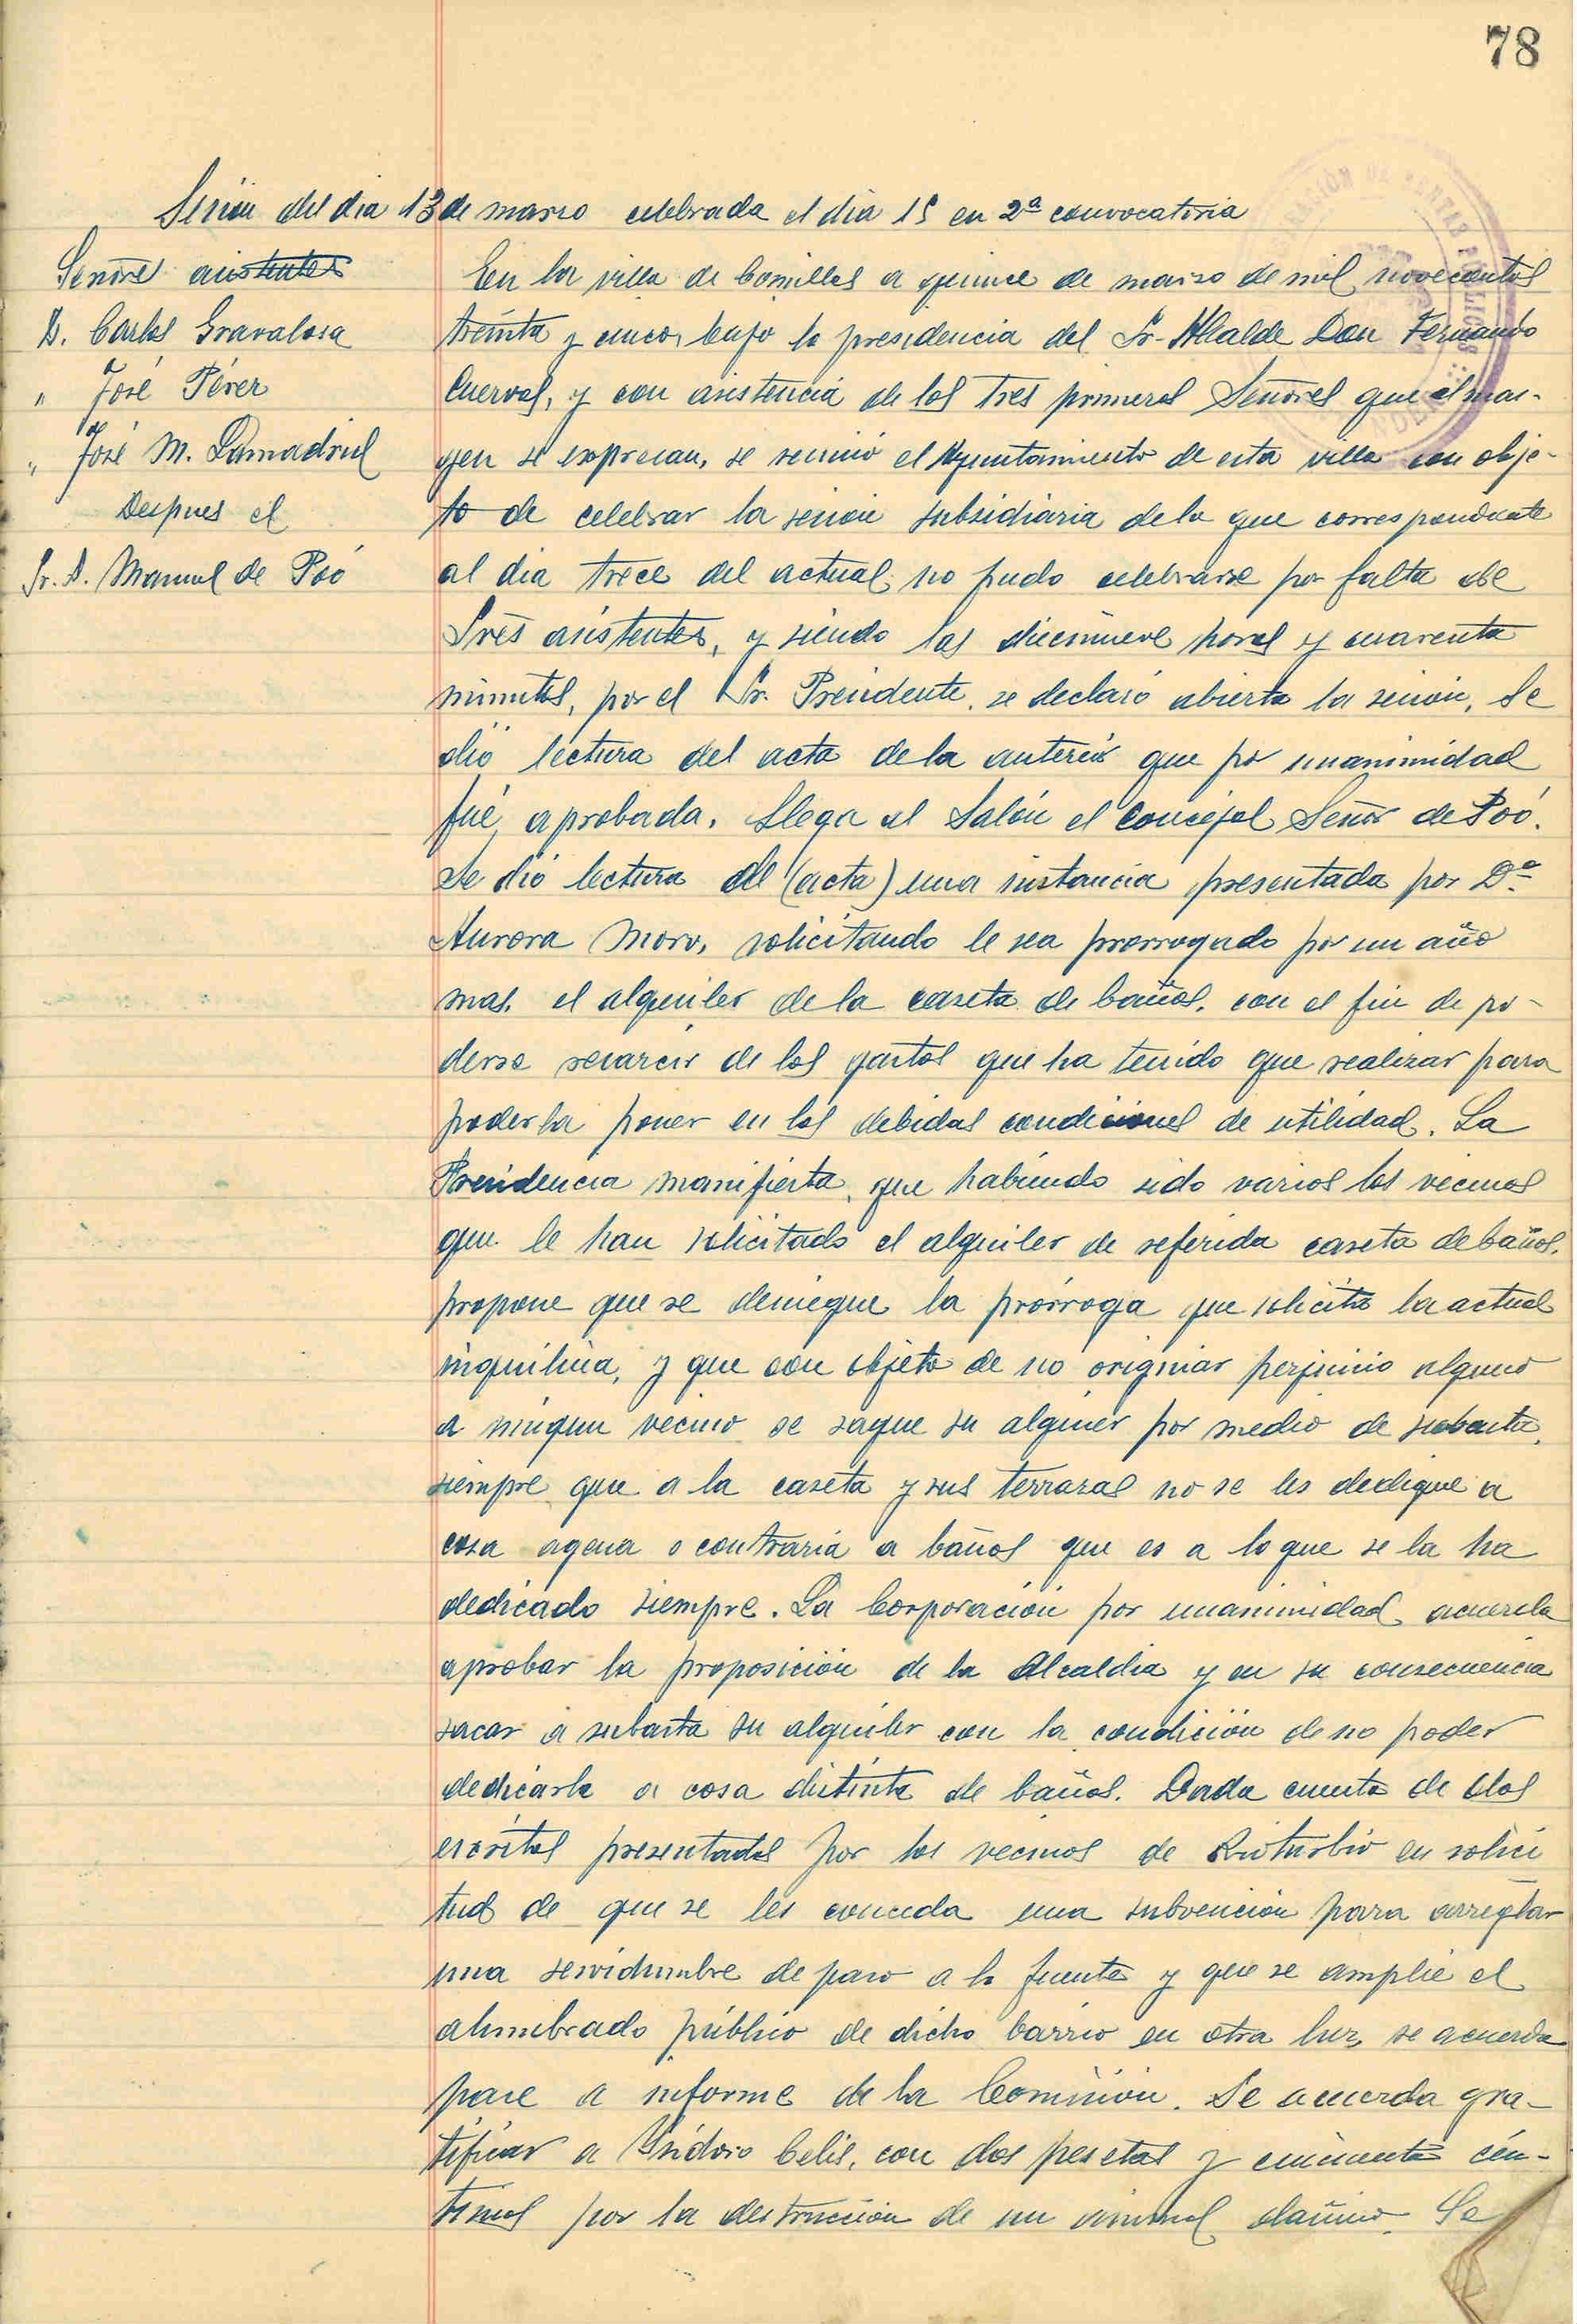 78
Sesión del dia 13 de marzo celebrada el dia 15 en 2ª convocatoria
Señores asistentes
D. Carlos Gravalosa
" José Pérez
" José M. Lamadrid
Despues el
Sr. D. Manuel de Poó
En la villa de Comillas a quince de marzo de mil novecientos
treinta y cinco, bajo la presidencia del Sr. Alcalde Don Fernando
Cuevas, y con asistencia de los tres primeros Señores que al mar-
gen se expresan, se reunió el Ayuntamiento de esta villa con obje-
to de celebrar la sesión subsidiaria de la que correspondiente
al dia trece del actual no pudo celebrarse por falta de
Sres asistentes, y siendo las diecinueve horas y cuarenta
minutos, por el Sr. Presidente, se declaró abierta la sesión. Se
dió lectura del acta de la anterior que por unanimidad
fué aprobada. Llega al Salón el Concejal Señor de Poó.
Se dió lectura del (acta) una instancia presentada por Dª
Aurora Moro, solicitando le sea prorrogado por un año
mas, el alquiler de la caseta de baños, con el fin de po-
derse resarcir de los gastos que ha tenido que realizar para
poderla poner en las debidas condiciones de utilidad. La
Presidencia manifiesta, que habiendo sido varios los vecinos
que le han solicitado el alquiler de referida caseta de baños,
propone que se deniegue la prórroga que solicita la actual
inquilina, y que con objeto de no originar perjuicio alguno
a ningun vecino se saque su alquier por medio de subasta,
siempre que a la caseta y sus terrazas no se les dedique a
cosa agena o contraria a baños que es a lo que se la ha
dedicado siempre. La Corporación por unanimidad acuerda
aprobar la proposición de la Alcaldia y en su consecuencia
sacar a subasta su alquiler con la condición de no poder
dedicarla a cosa distinta de baños. Dada cuenta de dos
escritos presentados por los vecinos de Rioturbio en solici
tud de que se les conceda una subvención para arreglar
una servidumbre de paso a la fuente y que se amplie el
alumbrado público de dicho barrio en otra luz, se acuerda
pase a informe de la Comisión. Se acuerda gra-
tificar a Isidoro Celis, con dos pesetas y cincuenta cén-
timos por la destrucción de un animal dañino. Se